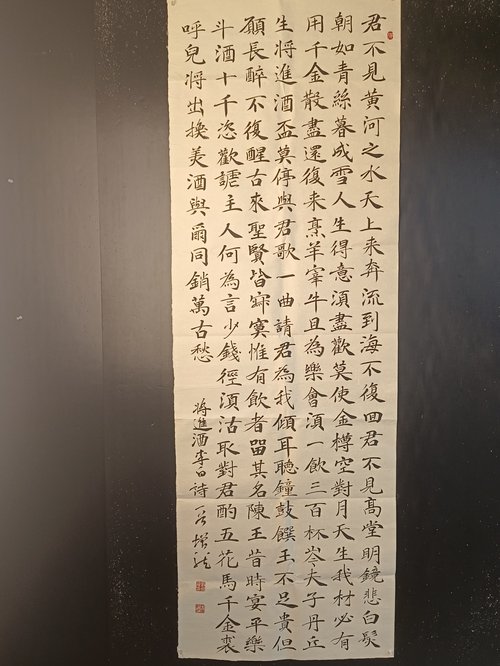 君不見黃河之水天上来奔流到海不復回君不見高堂明鏡悲白髮
朝如青絲暮成雪人生得意須盡歡莫使金樽空對月天生我材必有
用千金散盡還復来烹羊宰牛且為樂會須一飲三百杯岑夫子丹丘
生將進酒盃莫停與君歌一曲請君為我傾耳聽鐘鼓饌玉不足貴但
願長醉不復醒古來聖賢皆寂寞惟有飲者留其名陳王昔時宴平樂
斗酒十千恣歡謔主人何為言少錢徑須沽取對君酌五花馬千金裘
呼兒將出換美酒與爾同銷萬古愁
將進酒李白詩